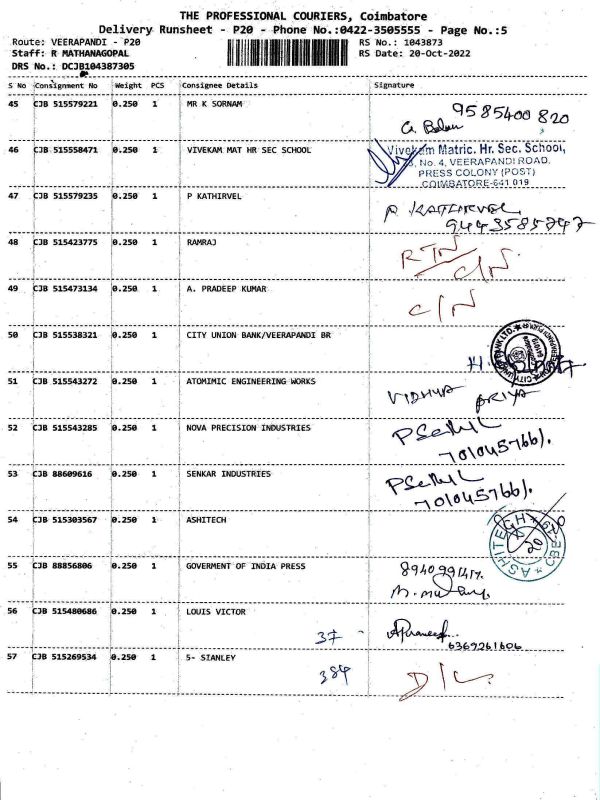 THE PROFESSIONAL COURIERS, Coimbatore
Delivery Runsheet - P20 - Phone No.:0422-3505555 - Page No.:5
Route: VEERAPANDI - P20 RS No.: 1043873
Staff: R MATHANAGOPAL RS Date: 20-Oct-2022
DRS No.: DCJB104387305
S No Consignment No Weight PCS Consignee Details Signature
45 CJB 515579221 0.250 1 MR K SORNAM 9585400820
G. Balan
46 CJB 515558471 0.250 1 VIVEKAM MAT HR SEC SCHOOL Vivekam Matric. Hr. Sec. School,
No. 4, VEERAPANDI ROAD,
PRESS COLONY (POST)
COIMBATORE-641 019
47 CJB 515579235 0.250 1 P KATHIRVEL P KATHIRVEL
9443585747
48 CJB 515423775 0.250 1 RAMRAJ RTN
C/N
49 CJB 515473134 0.250 1 A. PRADEEP KUMAR C/N
50 CJB 515538321 0.250 1 CITY UNION BANK/VEERAPANDI BR
51 CJB 515543272 0.250 1 ATOMIMIC ENGINEERING WORKS VIDHYA PRIYA
52 CJB 515543285 0.250 1 NOVA PRECISION INDUSTRIES
53 CJB 88609616 0.250 1 SENKAR INDUSTRIES
54 CJB 515303567 0.250 1 ASHITECH
55 CJB 88856806 0.250 1 GOVERMENT OF INDIA PRESS
56 CJB 515480686 0.250 1 LOUIS VICTOR 37
6369261606
57 CJB 515269534 0.250 1 5- SIANLEY 384 D/L.